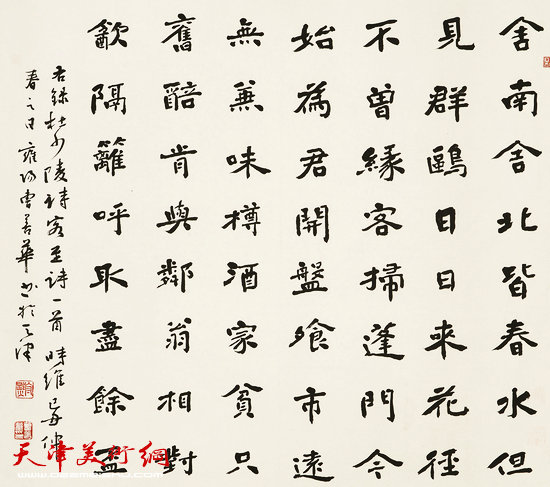 舍南舍北皆春水但
見群鷗日日來花徑
不曾緣客掃蓬門今
始為君開盤飧市遠
無兼味樽酒家貧只
舊醅肯與鄰翁相對
飲隔籬呼取盡餘盃
右錄杜少陵詩客至詩一首 時維己亥仲
春之日 雍陽曹善華書於天津
天津美術網